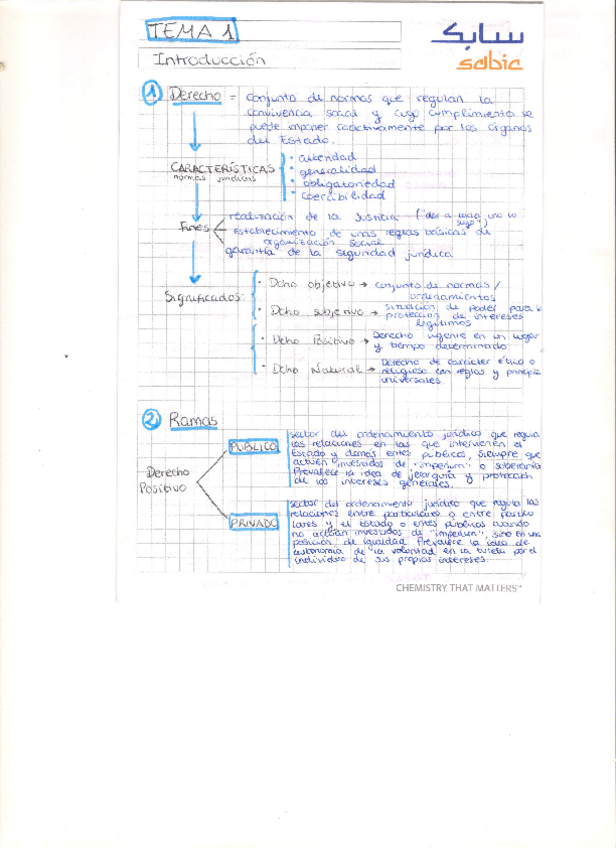 TEMA 1
سابك
sabic
Introducción
1 Derecho = conjunto de normas que regulan la
convivencia social y cuyo cumplimiento se
puede imponer coactivamente por los órganos
del Estado.
CARACTERÍSTICAS
normas jurídicas
· alteridad
· generalidad
· obligatoriedad
· coercibilidad
Fines
realización de la Justicia ("dar a cada uno lo
suyo")
establecimiento de unas reglas básicas de
organización social
garantía de la seguridad jurídica
Significados:
· Dcho objetivo → conjunto de normas/
ordenamientos
· Dcho subjetivo → situación de poder para
protección de intereses
legítimos
· Dcho Positivo → Derecho vigente en un lugar
y tiempo determinado
· Dcho Natural → Derecho de carácter ético o
religioso con reglas y principios
universales.
2 Ramas
Derecho
Positivo
PÚBLICO
sector del ordenamiento jurídico que regula
las relaciones en las que intervienen el
Estado y demás entes públicos, siempre que
actúen investidos de "imperium" o soberanía
Prevalece la idea de jerarquía y protección
de los intereses generales.
PRIVADO
sector del ordenamiento jurídico que regula las
relaciones entre particulares o entre particu
lares y el Estado o entes públicos cuando
no actúan investidos de "imperium", sino en una
posición de igualdad. Prevalece la idea de
autonomía de la voluntad en la tutela por el
individuo de sus propios intereses.
CHEMISTRY THAT MATTERS™